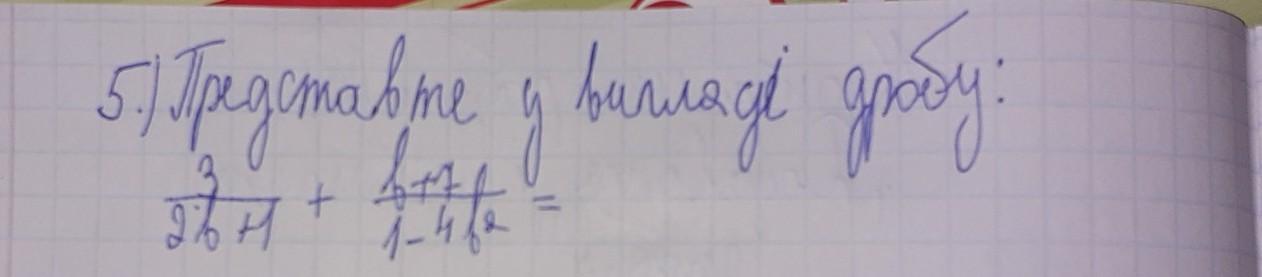 5.) Представте у вигляді дробу:
3/(2b+1) + (b+7)/(1-4b²) =